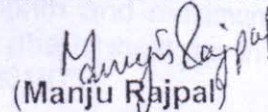 Manju Rajpal
(Manju Rajpal)